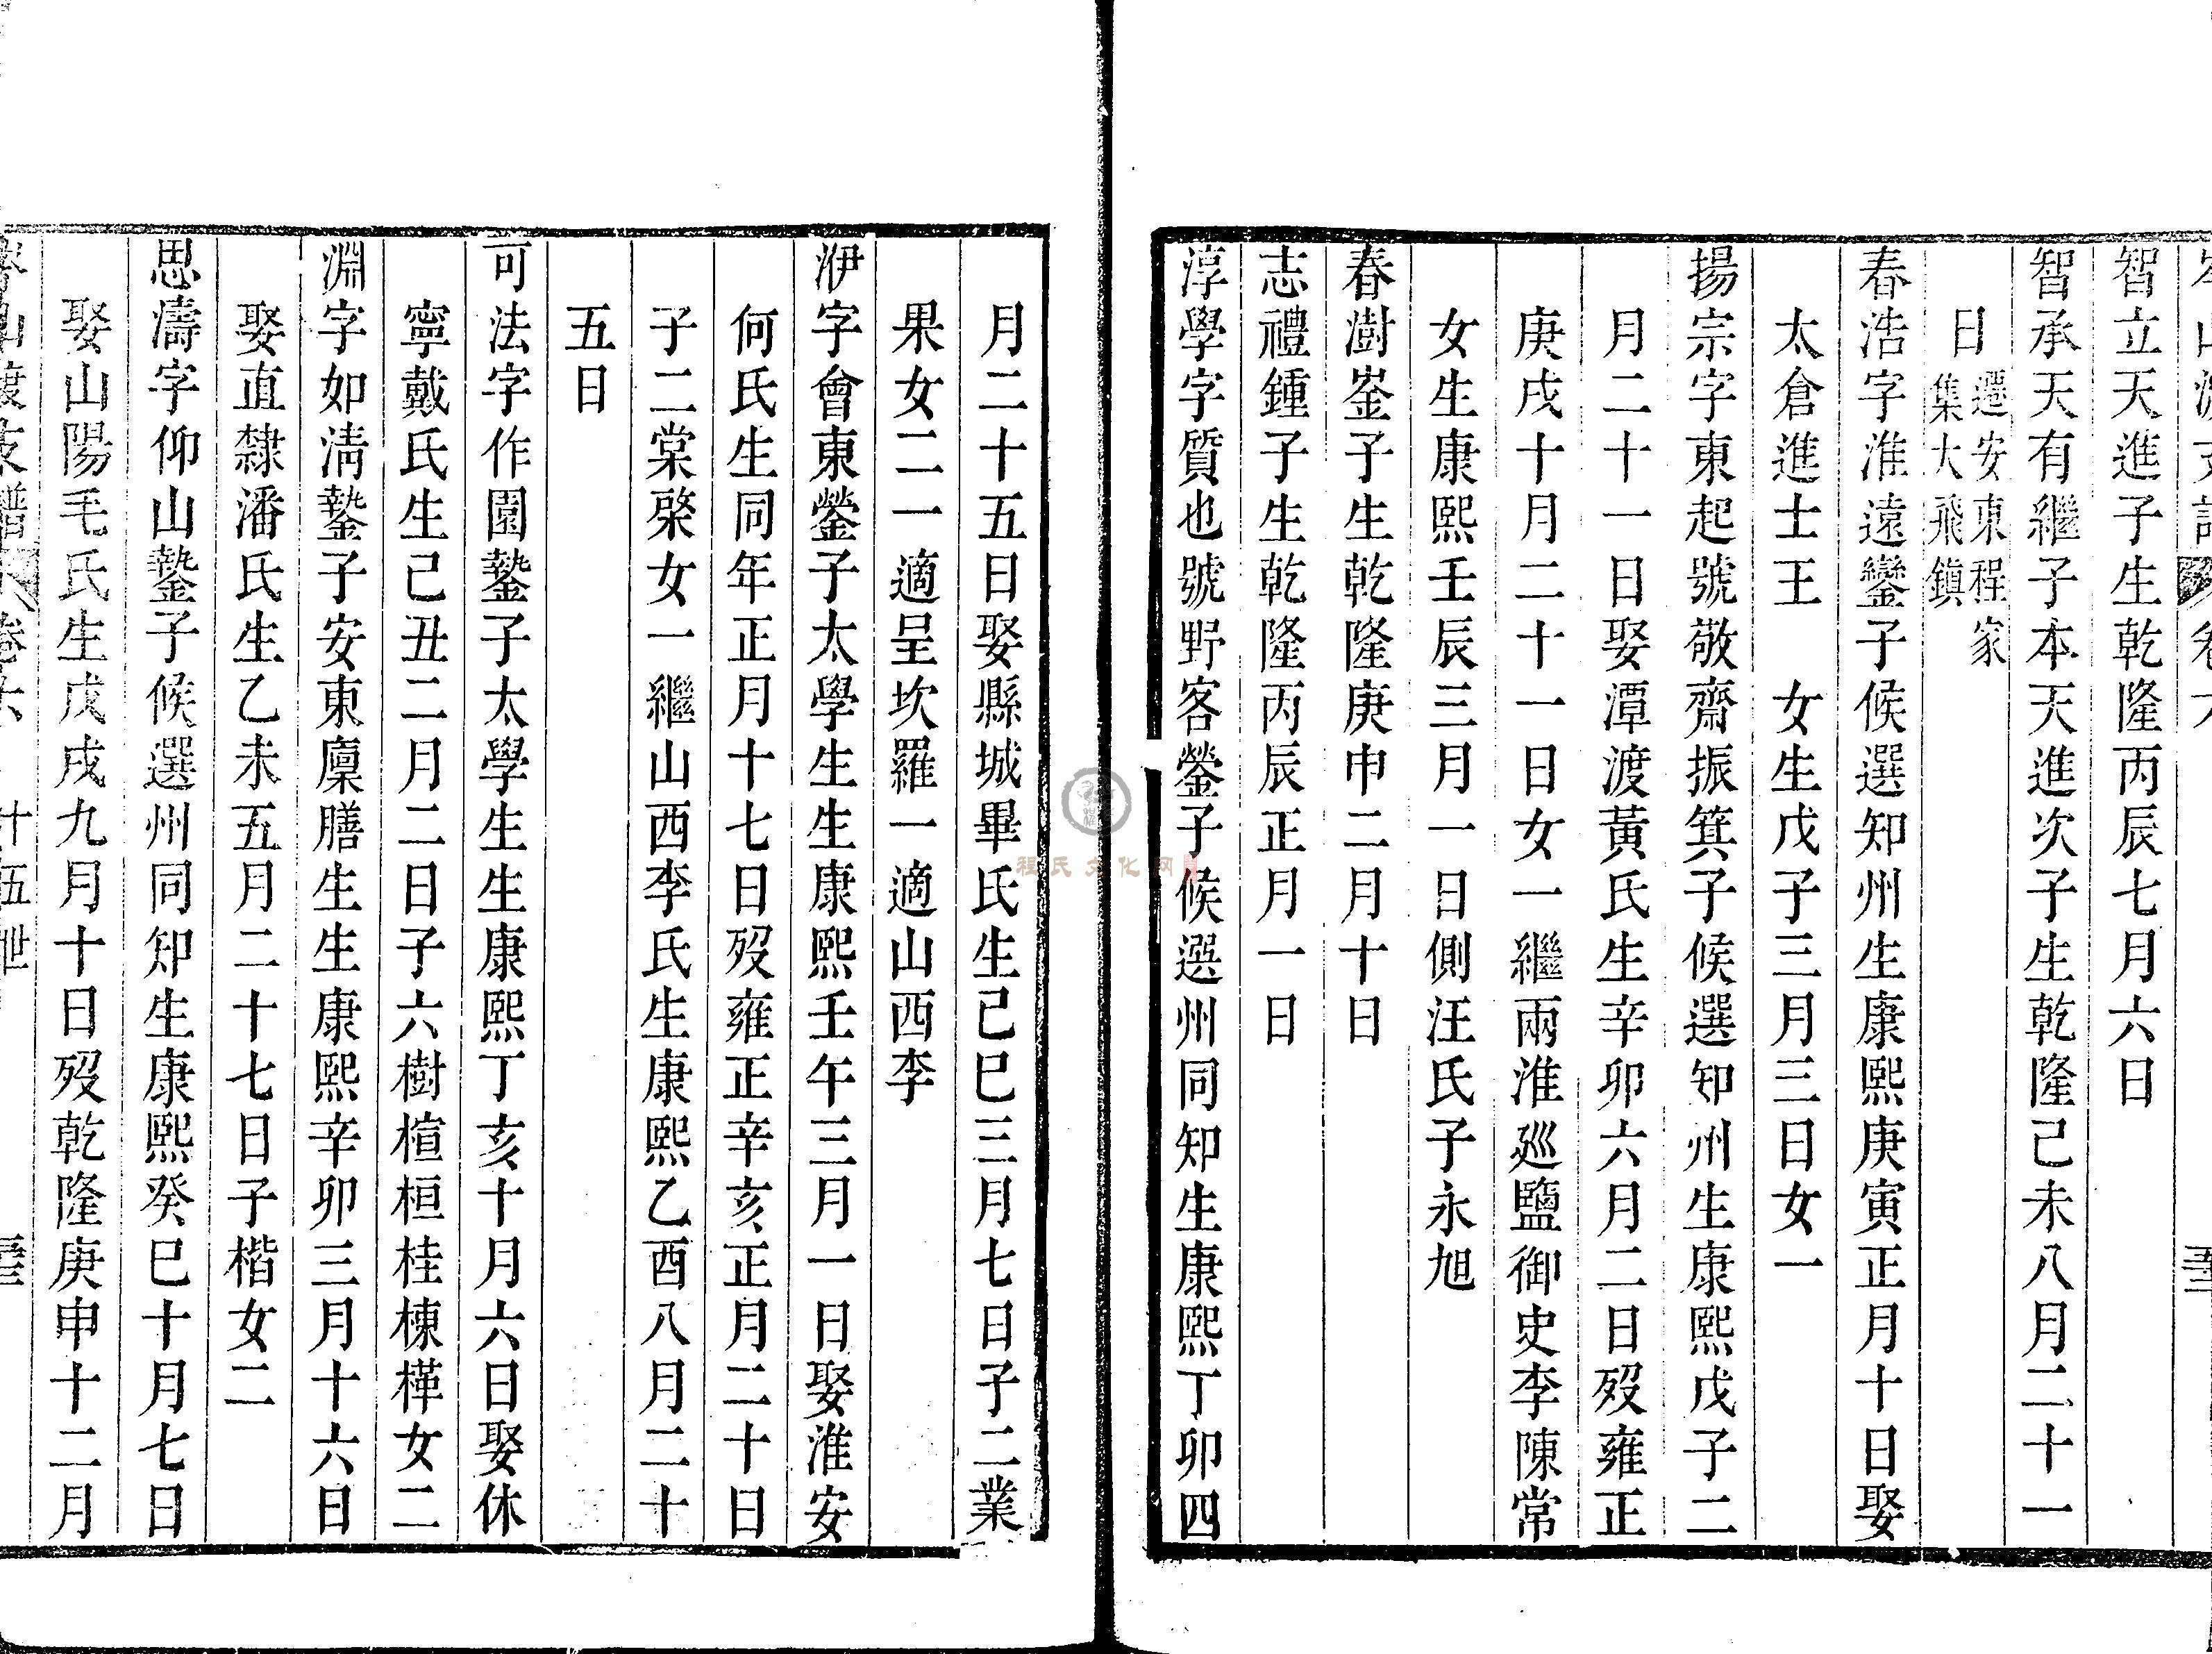 智立天進子生乾隆丙辰七月六日
智承天有繼子本天進次子生乾隆己未八月二十一
日遷安東程家
集大飛鎮
春浩字淮遠鑾子候選知州生康熙庚寅正月十日娶
太倉進士王 女生戊子三月三日女一
揚宗字東起號敬齋振箕子候選知州生康熙戊子二
月二十一日娶潭渡黃氏生辛卯六月二日歿雍正
庚戌十月二十一日女一繼兩淮巡鹽御史李陳常
女生康熙壬辰三月一日側汪氏子永旭
春澍崟子生乾隆庚申二月十日
志禮鍾子生乾隆丙辰正月一日
淳學字質也號野客鎣子候選州同知生康熙丁卯四
月二十五日娶縣城畢氏生己巳三月七日子二業
果女二一適呈坎羅一適山西李
洢字會東鎣子太學生生康熙壬午三月一日娶淮安
何氏生同年正月十七日歿雍正辛亥正月二十日
子二棠棨女一繼山西李氏生康熙乙酉八月二十
五日
可法字作園鏊子太學生生康熙丁亥十月六日娶休
寧戴氏生己丑二月二日子六樹楦桓桂棟檡女二
淵字如淸鏊子安東廩膳生生康熙辛卯三月十六日
娶直隸潘氏生乙未五月二十七日子楷女二
思濤字仰山鏊子候選州同知生康熙癸巳十月七日
娶山陽毛氏生戊戌九月十日歿乾隆庚申十二月
卷六 十五世
程氏文化网